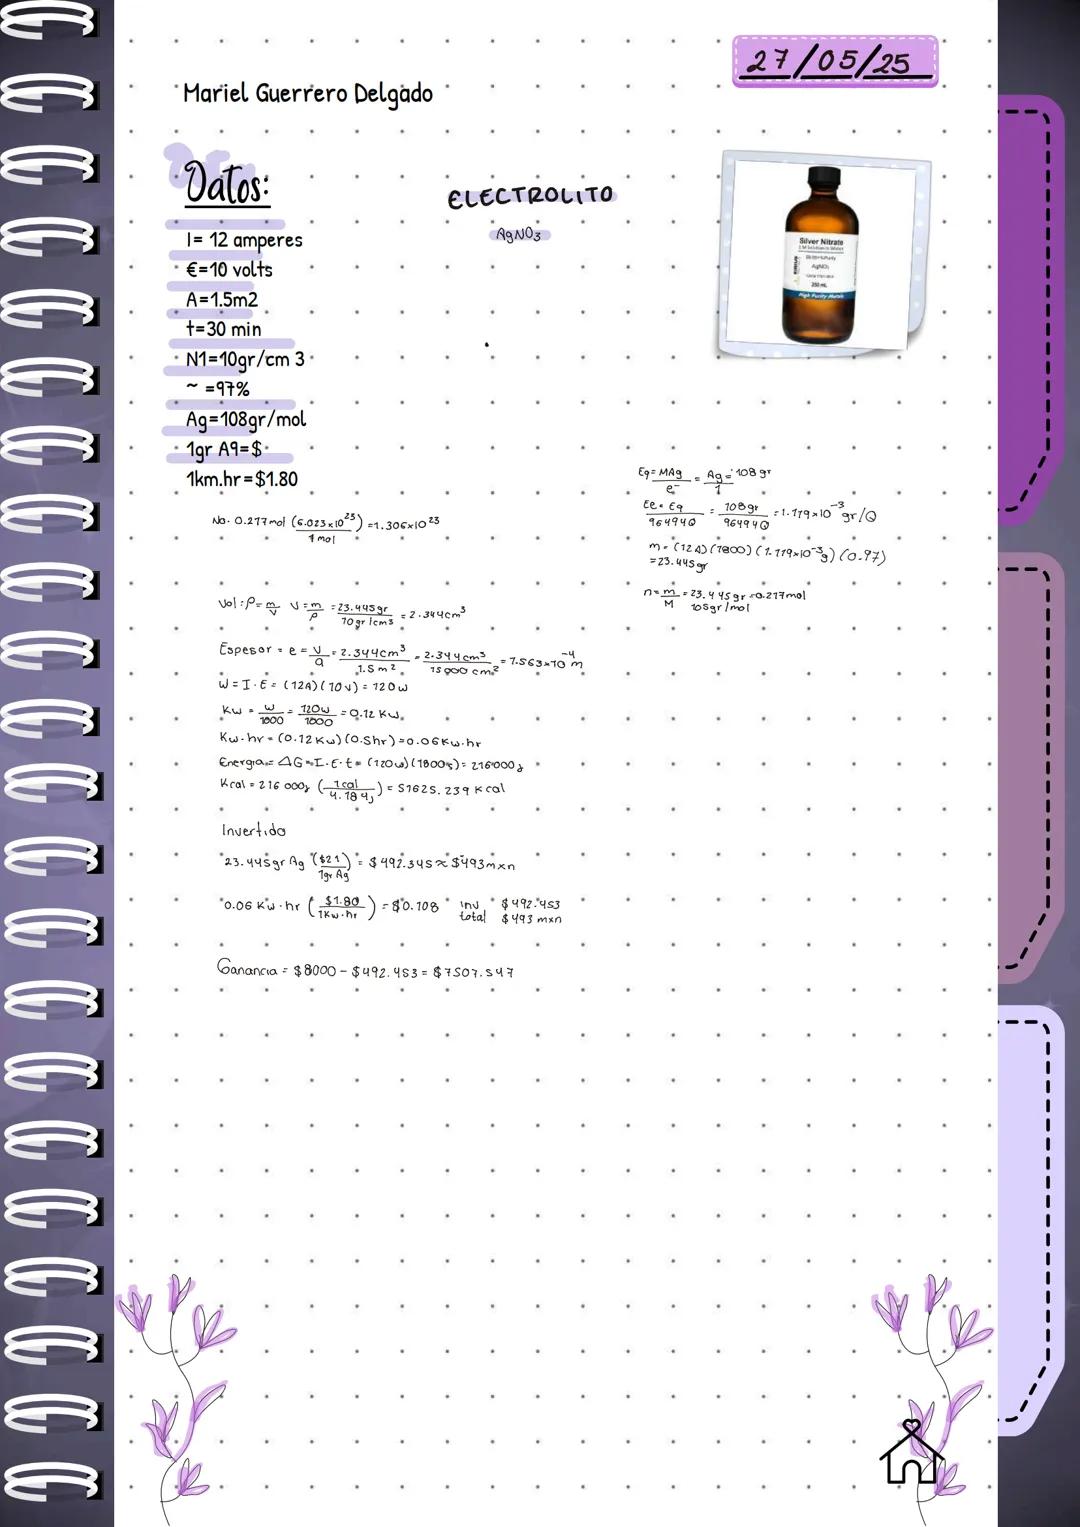 27/05/25
Mariel Guerrero Delgado
Datos:
ELECTROLITO
AgNO3
I= 12 amperes
€=10 volts
A=1.5m2
t=30 min
N1=10gr/cm 3
~ =97%
Ag=108gr/mol
1gr A9=$
1km.hr=$1.80
Silver Nitrate
AgNO3
250 mL
High Purity Metals
Eq= MAg/e- = Ag=108 gr/1
Ee= Eq/96494Q = 108gr/96494Q = 1.119x10-3 gr/Q
m= (12A)(1800)(1.119x10-3g)(0.97)
=23.445gr
n= m/M = 23.445gr/108gr/mol =0.217mol
No= 0.217mol (6.023x10 23/1 mol) =1.306x10 23
Vol: ρ= m/v V= m/ρ = 23.445gr/10gr/cm3 = 2.344cm3
Espesor = e = V/a = 2.344cm3/1.5m2 = 2.344cm3/15000cm2 = 1.563x10-4 m
W = I·E = (12A)(10v) = 120w
Kw = w/1000 = 120w/1000 = 0.12 Kw
Kw·hr = (0.12Kw)(0.5hr)=0.06Kw·hr
Energia= ΔG=I·E·t= (120w)(1800s)= 216000j
Kcal = 216 000j (1cal/4.184j) = 51625.239 Kcal
Invertido
23.445gr Ag ($21/1gr Ag) = $492.345≈$493mxn
0.06 Kw·hr ($1.80/1Kw·hr) =$0.108 inv total $492.453
$493 mxn
Ganancia = $8000 - $492.453 = $7507.547